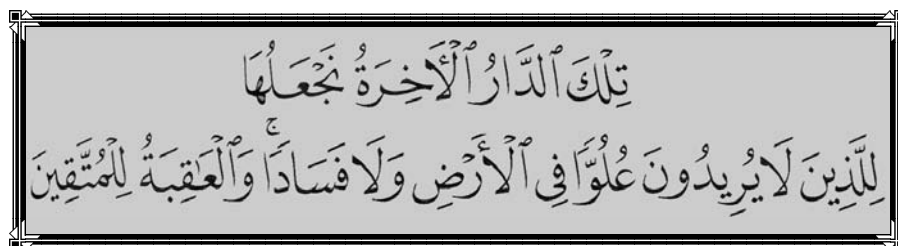 تِلْكَ ٱلدَّارُ ٱلْأَخِرَةُ نَجْعَلُهَا
لِلَّذِينَ لَا يُرِيدُونَ عُلُوًّا فِى ٱلْأَرْضِ وَلَا فَسَادًا ۚ وَٱلْعَٰقِبَةُ لِلْمُتَّقِينَ